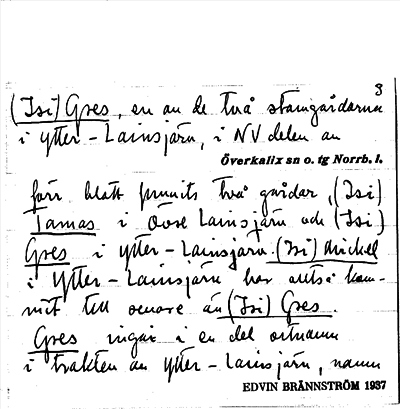 3
(Isi) Gres, en av de två stamgårdarna
i Ytter-Lainsjärv, i NV delen av
Överkalix sn o. tg Norrb. l.
förr blott funnits två gårdar, (Isi)
Tamas i Övre Lainsjärv och (Isi)
Gres i Ytter-Lainsjärv. (Isi) Mickel
i Ytter-Lainsjärv har alltså kom-
mit till senare än (Isi) Gres.
Gres ingår i en del ortnamn
i trakten av Ytter-Lainsjärv, namn
EDVIN BRÄNNSTRÖM 1937